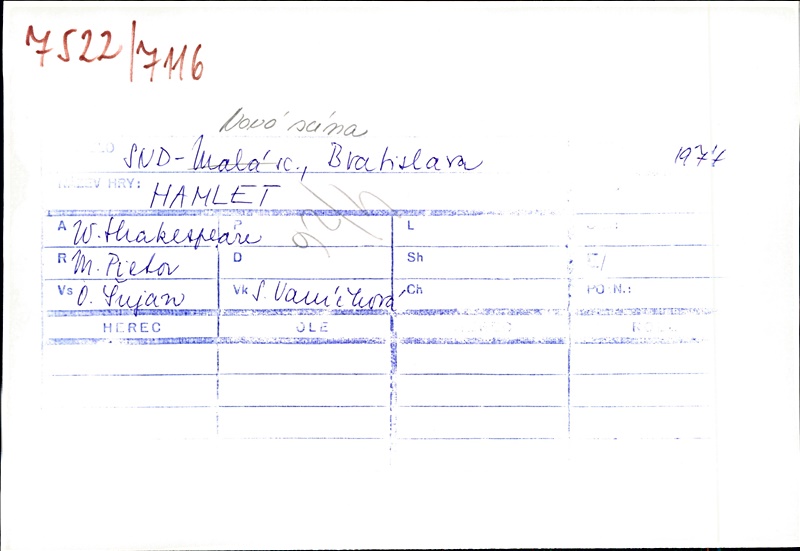 7522/7116
Nová scéna
SND - Malá sc., Bratislava 1974
NÁZEV HRY: HAMLET
A W. Shakespeare P L
R M. Pietor D Sh
Vs O. Šujan Vk S. Vaníčková Ch POZN.:
HEREC ROLE HEREC ROLE